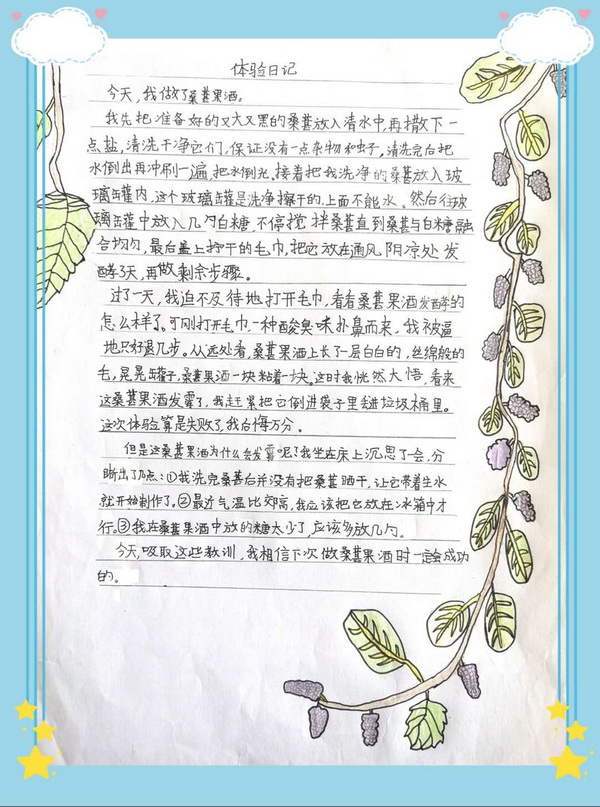 体验日记
今天,我做了桑葚果酒。
我先把准备好的又大又黑的桑葚放入清水中,再撒下一
点盐,清洗干净它们,保证没有一点杂物和虫子,清洗完后把
水倒出再冲刷一遍,把水倒光。接着把我洗净的桑葚放入玻
璃缸罐内,这个玻璃缸罐是洗净擦干的,上面不能水。然后往玻
璃缸罐中放入几勺白糖,不停搅拌桑葚直到桑葚与白糖融
合均匀,最后盖上拧干的毛巾,把它放在通风阴凉处发
酵3天,再做剩余步骤。
过了一天,我迫不及待地打开毛巾,看看桑葚果酒发酵的
怎么样了。可刚打开毛巾,一种酸臭味扑鼻而来,我被逼
地只好退几步。从远处看,桑葚果酒上长了一层白白的,丝绵般的
毛,晃晃罐子,桑葚果酒一块粘着一块。这时我恍然大悟,看来
这桑葚果酒发霉了,我赶紧把它倒进袋子里丢进垃圾桶里。
这次体验算是失败了,我后悔万分。
但是这桑葚果酒为什么会发霉呢?我坐在床上沉思了一会,分
晰出了几点:①我洗完桑葚后并没有把桑葚晒干,让它带着生水
就开始制作了。②最近气温比较高,我应该把它放在冰箱中才
行。③我在桑葚果酒中放的糖太少了,应该多放几勺。
今天,吸取这些教训,我相信下次做桑葚果酒时一定会成功
的。